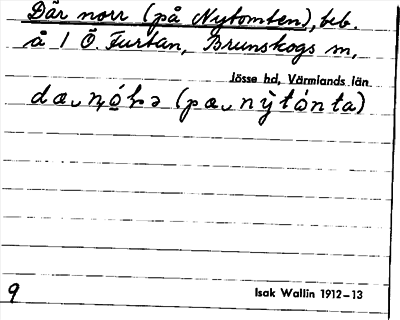 Där norr (på Nytomten), beb.
å 1 Ö Furtan, Brunskogs sn,
Jösse hd, Värmlands län
dæ⏑ ṇó̱ɦə (pæ⏑ nỳtónta)
9
Isak Wallin 1912–13